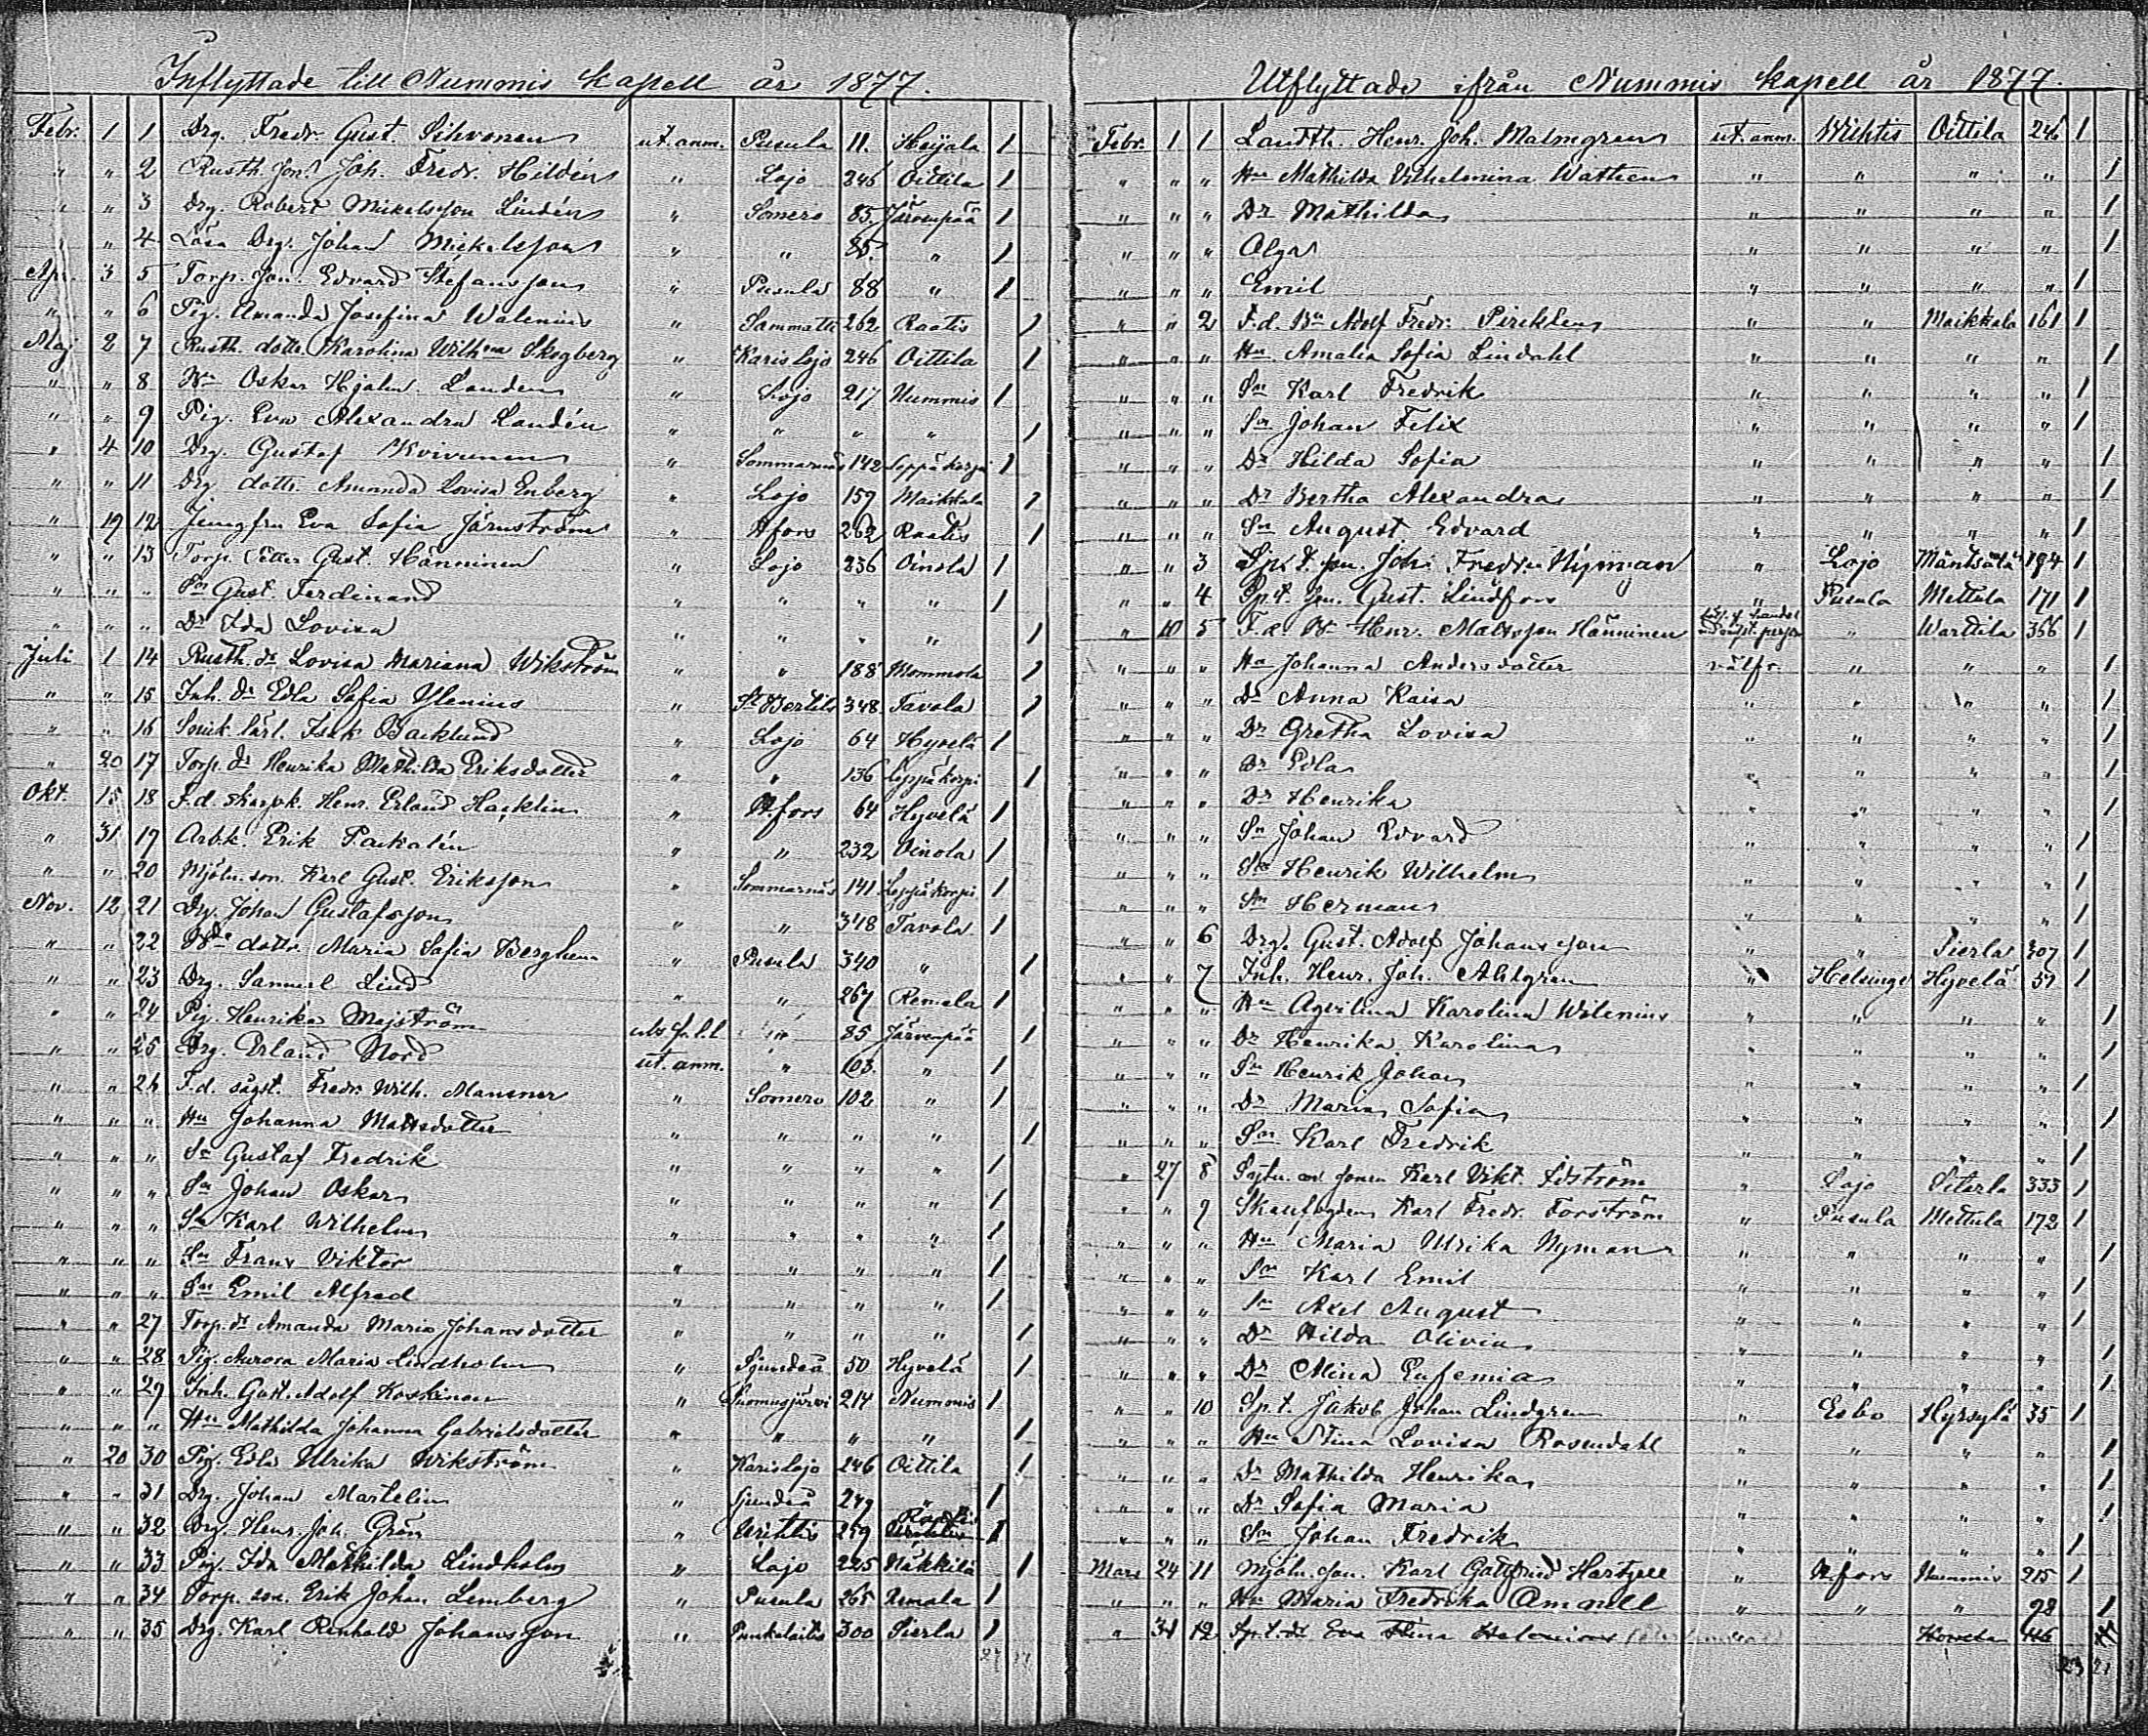 Inflyttade till Nummis kapell år 1877.
Febr. 1 1 Drg. Fredr. Gust. Sihvonen ut. anm. Pusula 11. Heijala 1
" " 2 Rusth. son Joh. Fredr. Hildén " Lojo 246 Oittila 1
" " 3 Drg. Robert Mickelsson Lindén " Somero 85 Järvenpää 1
" " 4 Lösa Drg. Johan Mickelsson " " 85. " 1
Apr. 3 5 Torp. son. Edvard Stefansson " Pusula 88 " 1
" " 6 Pig. Amanda Josefina Walenius " Sammatti 262 Raatis 1
Maj 2 7 Rusth. dottr. Karolina Wilhna Skogberg " Karislojo 246 Oittila 1
" " 8 Oskar Hjalm. Landen " Lojo 217 Nummis 1
" " 9 Pig. Eva Alexandra Landén " " " " 1
" 4 10 Drg. Gustaf Kvivinen " Sommarnäs 142 Leppäkorpi 1
" " 11 Drg dottr. Amanda Lovisa Enberg " Lojo 159 Maikkala 1
" 19 12 Jungfru Eva Sofia Järnström " Hfors 262 Raatis 1
" " 13 Torp. Gust. Hänninen " Lojo 236 Oinola 1
" " " Sn Gust. Ferdinand " " " " 1
" " " Dr Ida Lovisa " " " " 1
Juli 1 14 Rusth. dr Lovisa Mariana Wikström " " 188 Mommola 1
" " 15 Inh. dr Edla Sofia Ylenius " St Bertils 348 Tavola 1
" " 16 Snick. lärl. Isak Backlund " Lojo 64 Hyvelä 1
" 20 17 Torp. dr Henrika Mathilda Eriksdotter " " 136 Leppäkorpi 1
Okt. 15 18 F.d. skarpsk. Henr. Erland Hacklin " H.fors 64 Hyvelä 1
" 31 19 Arb.k. Erik Packalén " " 232 Oinola 1
" " 20 Mjöln. son. Karl Gust. Eriksson " Sommarnäs 141 Leppäkorpi 1
Nov. 12 21 Drg. Johan Gustafsson " " 348 Tavola 1
" " 22 dottr. Maria Sofia Berghem " Pusula 340 " 1
" " 23 Drg. Samuel Lind " " 267 Remala 1
" " 24 Pig. Henrika Majström " 85 Järvenpää 1
" " 25 Drg. Erland Nord ut. anm. " 103. " 1
" " 26 F.d. Fredr. Wilh. Mansner " Somero 102 " 1
" " " Hu Johanna Mattsdotter " " " " 1
" " " Sn Gustaf Fredrik " " " " 1
" " " Sn Johan Oskar " " " " 1
" " " Sn Karl Wilhelm " " " " 1
" " " Sn Frans Viktor " " " " 1
" " " Sn Emil Alfred " " " " 1
" " 27 Torp. dr Amanda Maria Johansdotter " " " " 1
" " 28 Pig. Aurora Maria Lindholm " Sjundeå 50 Hyvelä 1
" " 29 Inh. Gust. Adolf Koskinen " Suomusjärvi 214 Nummis 1
" " " Hu Mathilda Johanna Gabrielsdotter " " " " 1
" 20 30 Pig. Edla Ulrika Wikström " Karislojo 246 Oittila 1
" " 31 Drg. Johan Martelin " Sjundeå 249 " 1
" " 32 Drg. Henr. Joh. Grön " Wichtis 259 Raatis 1
" " 33 Pig. Ida Mathilda Lindholm " Lojo 225 Näkkilä 1
" " 34 Torp. son. Erik Johan Lemberg " Pusula 265 Remala 1
" " 35 Drg. Karl Renhold Johansson " Punkalaitio 300 Pierla 1
27 17
Utflyttade ifrån Nummis kapell år 1877.
Febr. 1 1 Landth. Henr. Joh. Malmgren ut. anm. Wichtis Oittila 246 1
" " " Hu Mathilda Vilhelmina Wathen " " " " 1
" " " Dr Mathilda " " " " 1
" " " Olga " " " " 1
" " " Emil " " " " 1
" " 2 F.d. Bn Adolf Fredr. Pirklen " " Maikkala 161 1
" " " Hu. Amalia Sofia Lindahl " " " " 1
" " " Sn Karl Fredrik " " " " 1
" " " Sn Johan Felix " " " " 1
" " " Dr Hilda Sofia " " " " 1
" " " Dr Bertha Alexandra " " " " 1
" " " Sn August Edvard " " " " 1
" " 3 Sp. t. son. Joh. Fredr. Nyman " Lojo Mäntsälä 194 1
" " 4 Sp.t. son. Gust. Lindfors " Pusula Mettula 171 1
" 10 5 F.d. Bn Henr. Mattsson Hänninen " Warttila 356 1
" " " Hu Johanna Andersdotter välfr. " " " 1
" " " Dr Anna Kaisa " " " " 1
" " " Dr Gretha Lovisa " " " " 1
" " " Dr Edla " " " " 1
" " " Dr Henrika " " " " 1
" " " Sn Johan Edvard " " " " 1
" " " Sn Henrik Wilhelm " " " " 1
" " " Sn Herman " " " " 1
" " 6 Drg. Gust. Adolf Johansson " " Pierla 307 1
" " 7 Inh. Henr. Joh. Ahlgren " Helsinge Hyvelä 51 1
" " " Hu Agvilina Karolina Wilenius " " " " 1
" " " Dr Henrika Karolina " " " " 1
" " " Sn Henrik Johan " " " " 1
" " " Dr Maria Sofia " " " " 1
" " " Sn Karl Fredrik " " " " 1
" 27 8 Karl Vikt. Idström " Lojo Pitarla 333 1
" " 9 Skogfogden Karl Fredr. Forström " Pusula Mettula 172 1
" " " Hu Maria Ulrika Nyman " " " " 1
" " " Sn Karl Emil " " " " 1
" " " Sn Axel August " " " " 1
" " " Dr Hilda Olivia " " " " 1
" " " Dr Mina Eufemia " " " " 1
" " 10 Sp.t. Jakob Johan Lindgren " Esbo Hyrsylä 35 1
" " " Hu Stina Lovisa Rosendahl " " " " 1
" " " Dr Mathilda Henrika " " " " 1
" " " Dr Sofia Maria " " " " 1
" " " Sn Johan Fredrik " " " " 1
Mars 24 11 Mjöln. son. Karl Gottfried Hartzell " H.fors Nummis 215 1
" " " Hu Maria Fredrika Amnell " " " 98 1
" 31 12 Sp.t. dr Eva Stina Helenius 116
23 21